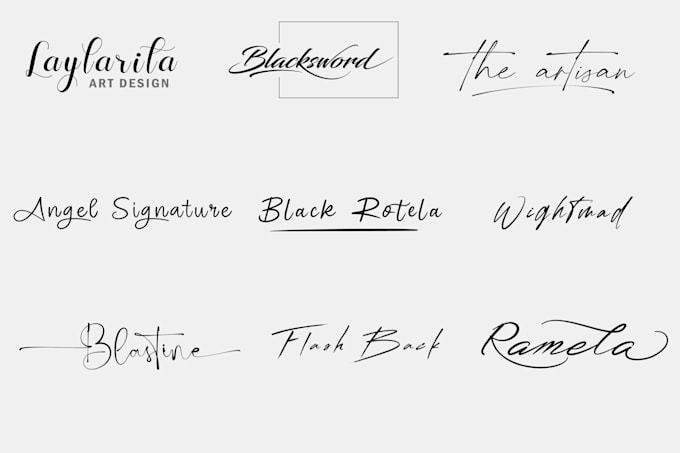 Laylarita
ART DESIGN
Blacksword
the artisan
Angel Signature
Black Rotela
Wightmad
Blastine
Flash Back
Ramela